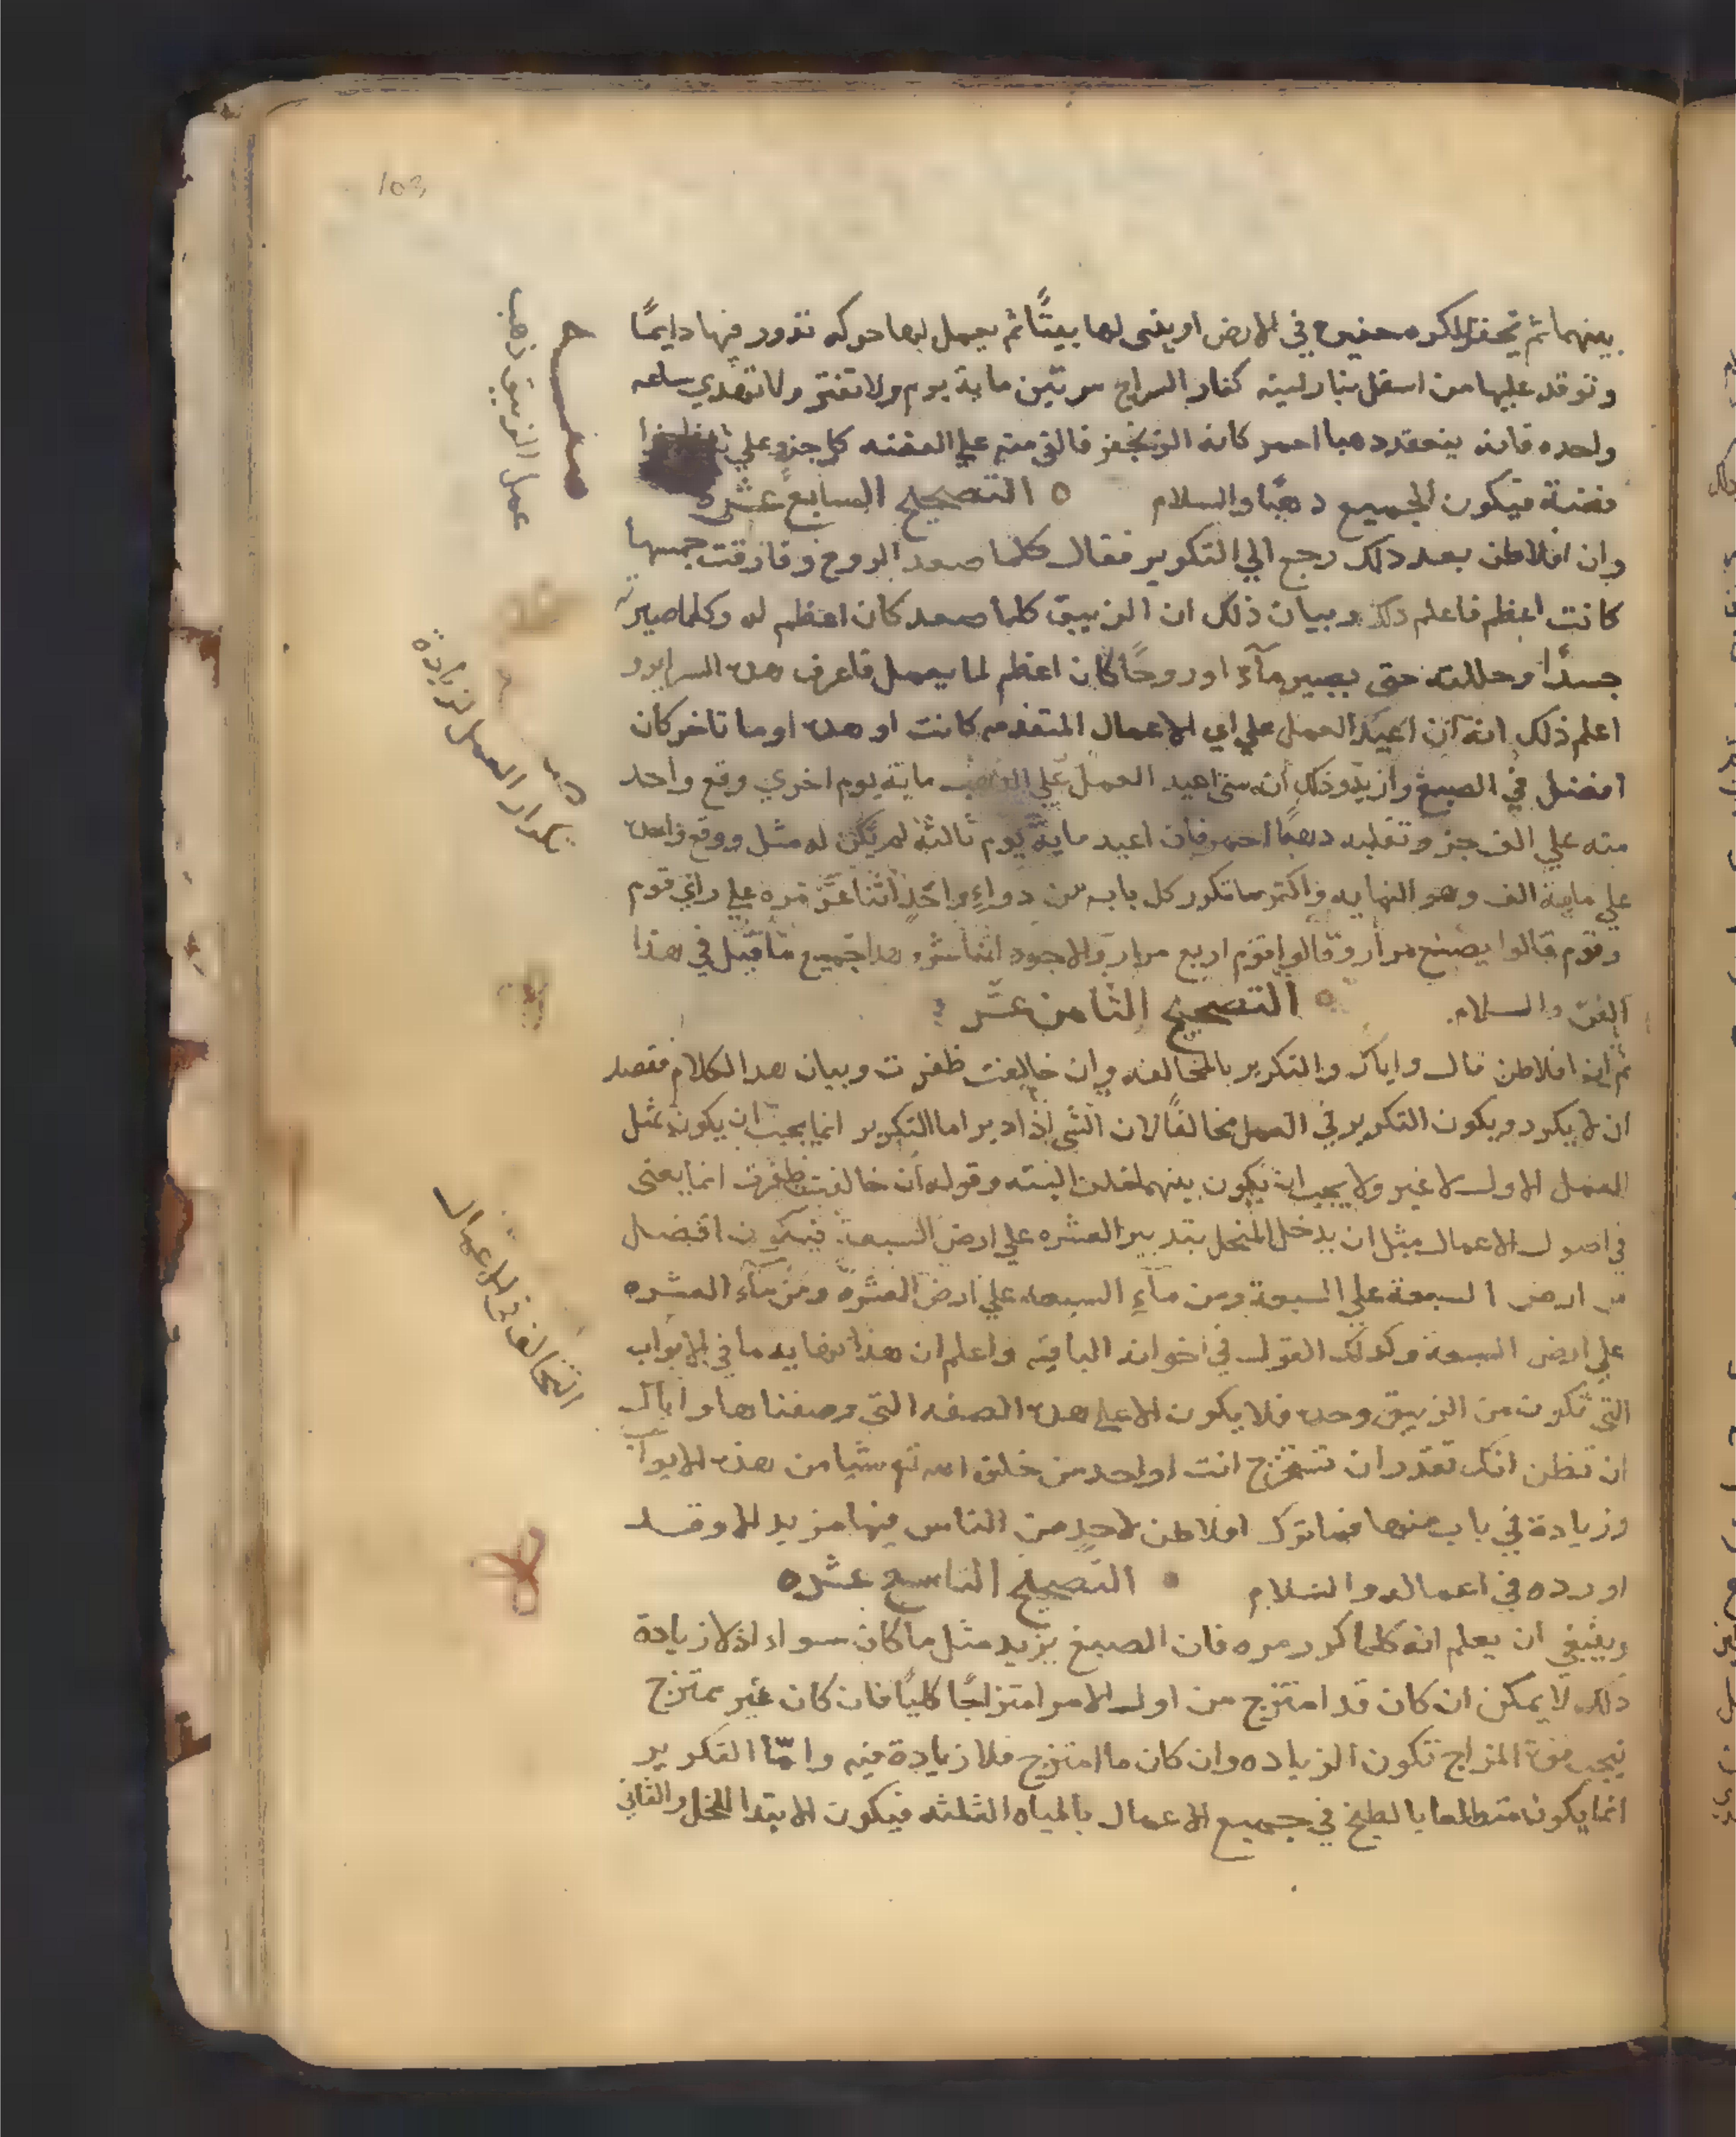 103
بينهما ثم تحفر للكره حفيره في الارض او يبنى لها بيتًا ثم يعمل لها حركه تدور فيها دايمًا
وتوقد عليها من اسفل بنار لينه كنار السراج مرتين ماية يوم ولا تفتر ولا تهدي ساعه
واحده فانه ينعقد دهبا احمر كانه الزنجفر فالق منه علي الفضه كل جزو علي
فضة فيكون الجميع دهبًا والسلام ه التصحيح السابع عشره
وان افلاطن بعد دلك رجع الي التكوير فقال كلما صعد الروح وفارقت جسمها
كانت اعظم فاعلم دلك وبيان ذلك ان الزيبق كلما صعد كان اعظم له وكلما صيرته
جسدًا وحللته حتى يصير مآء او روحًا كان اعظم لما يعمل فاعرف هده السراير و
اعلم ذلك انه ان اعيد العمل علي اي الاعمال المتقدمه كانت او هده او ما تاخر كان
افضل في الصبغ وازيد وذلك ان متى اعيد العمل علي ماية يوم اخري وقع واحد
منه علي الف جز وتقلبه دهبًا احمر فان اعيد ماية يوم ثالثة لم يكن له مثل ووقع واحده
علي ماية الف وهو النهايه واكثر ما تكرر كل باب من دواءٍ واحدٍ اثنا عشر مره علي راي قوم
وقوم قالوا يصنع مرار وقالوا قوم اربع مرار والاجود اثنا عشر وهدا جميع ما قيل في هذا
الفن والسلام. ه التصحيح الثامن عشر
ثم ان افلاطن قال واياك والتكرير بالمخالفه وان خالفت ظفرت وبيان هدا الكلام فقصد
ان لا يكرر ويكون التكرير في العمل مخالفًا لان الشي اذا دبر اما التكرير انما يجب ان يكون مثل
العمل الاول لا غير ولا يجب ان يكون بينهما البته وقوله ان خالفت ظفرت انما يعني
في اصول الاعمال مثل ان يدخل المنحل بتدبير العشره علي ارض السبعة فيكون افضل
من ارض السبعة علي السبعة ومن مآءِ السبعه علي ارض العشرة ومن مآء العشره
علي ارض السبعة وكدلك القول في اخواته الباقيه واعلم ان هذا نهايه ما في الابواب
التي تكون من الزيبق وحده فلا يكون الا علي هده الصفه التي وصفناها واياك
ان تظن انك تقدر ان تستخرج انت او احد من خلق الله تع شيا من هذه الابواب
وزيادة في باب منها فما ترك افلاطن لاحدٍ من الناس فيها مزيد الا وقد
اورده في اعماله والسلام ه التصحيح التاسع عشره
وينبغي ان يعلم انه كلما كرر مره فان الصبغ يزيد مثل ما كان سواء اذ لا زيادة
دلك لا يمكن ان كان قد امتزج من اول الامر امتزاجًا كليًا فان كان غير ممتزج
فبحسب قوة المزاج تكون الزياده وان كان ما امتزج فلا زيادة فيه وامّا التكرير
انما يكون بالطبخ في جميع الاعمال بالمياه الثلثه فيكون الابتدا الخل والثاني
عمل الزيبق ذهب
تكرار العمل لزيادة
التخالف في الاعمال